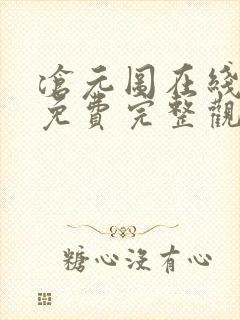 滄元圖在綫
免費完整觀
糖心沒有心